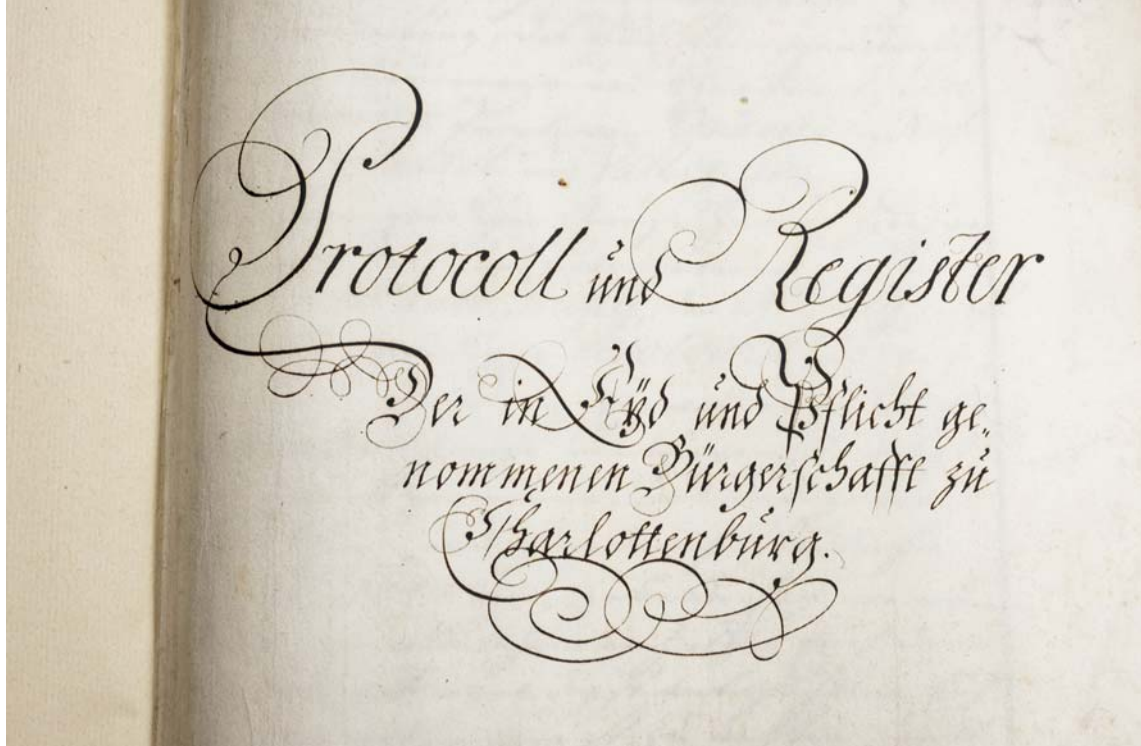 Protocoll und Register
Der in Eÿd und Pflicht ge„
nommenen Bürgerschafft zu
Charlottenburg.